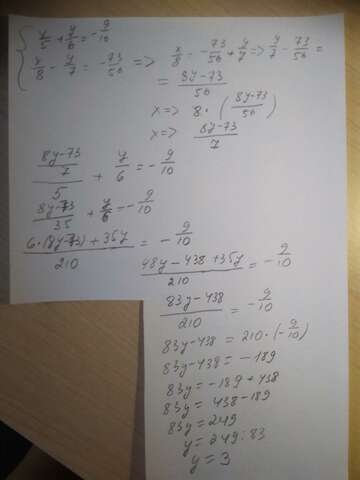 { x/5 + y/6 = -9/10
x/8 - y/7 = -73/56 => x/8 - -73/56 + y/7 => y/7 - 73/56 =
= 8y-73/56
x => 8 · (8y-73/56)
x => 8y-73/7
(8y-73/7)/5 + y/6 = -9/10
8y-73/35 + y/6 = -9/10
6·(8y-73)+35y/210 = -9/10
48y-438+35y/210 = -9/10
83y-438/210 = -9/10
83y-438 = 210·(-9/10)
83y-438 = -189
83y = -189+438
83y = 438-189
83y = 249
y = 249:83
y = 3